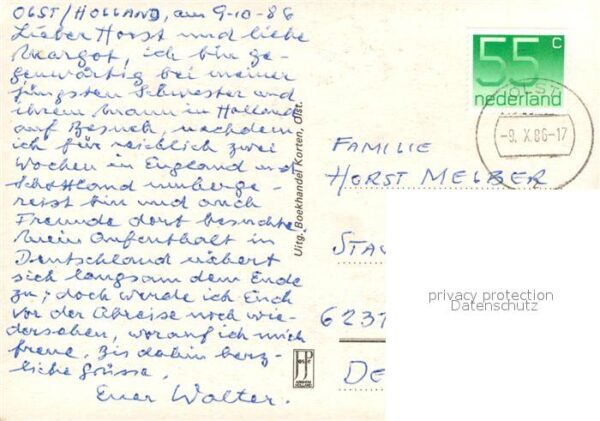 OLST/HOLLAND, am 9-10-86
Lieber Horst und liebe
Margot, ich bin ge-
genwärtig bei meiner
jüngsten Schwester und
ihrem Mann in Holland
auf Besuch, nachdem
ich für reichlich zwei
Wochen in England und
Schottland umherge-
reist bin und auch
Freunde dort besuchte.
Mein Aufenthalt in
Deutschland nähert
sich langsam dem Ende
zu; doch werde ich Euch
vor der Abreise noch wie-
dersehen, worauf ich mich
freue. Bis dahin herz-
liche Grüsse,
Euer Walter.
Uitg. Boekhandel Korten, Olst.
55 c
nederland
OLST
-9. X.86-17
FAMILIE
HORST MELBER
STA
6237
DE
privacy protection
Datenschutz